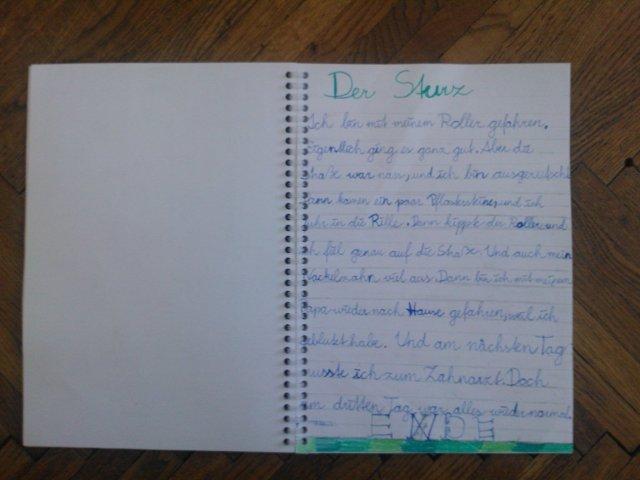 Der Sturz
Ich bin mit meinem Roller gefahren.
Eigentlich ging es ganz gut. Aber die
Straße war nass, und ich bin ausgerutscht
Dann kamen ein paar Pflastersteine, und ich
fuhr in die Rille. Dann kippte der Roller und
ich fiel genau auf die Straße. Und auch mein
Wackelzahn viel aus. Dann bin ich mit meinem
Papa wieder nach Hause gefahren, weil ich
geblutet habe. Und am nächsten Tag
musste ich zum Zahnarzt. Doch
am dritten Tag war alles wieder normal.
ENDE